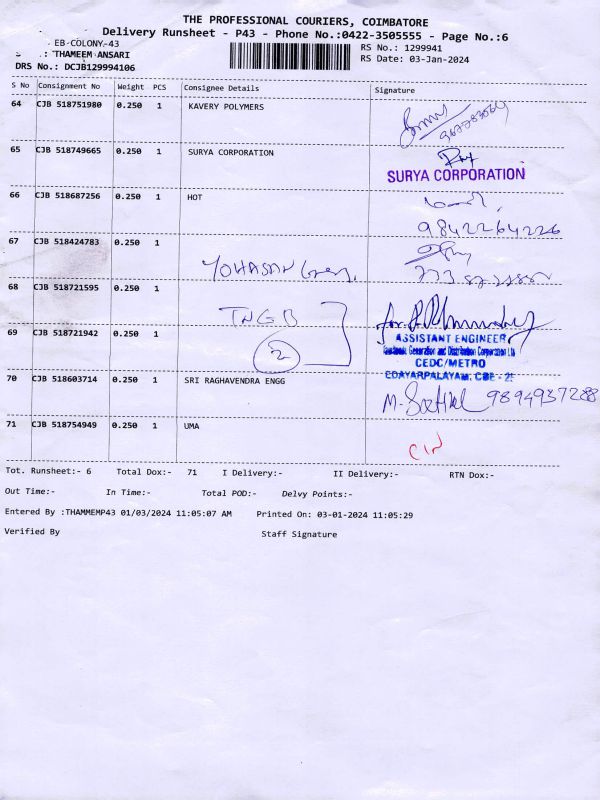 THE PROFESSIONAL COURIERS, COIMBATORE
Delivery Runsheet - P43 - Phone No.:0422-3505555 - Page No.:6
EB-COLONY-43
RS No.: 1299941
: THAMEEM ANSARI
RS Date: 03-Jan-2024
DRS No.: DCJB129994106
S No Consignment No Weight PCS Consignee Details Signature
64 CJB 518751980 0.250 1 KAVERY POLYMERS
65 CJB 518749665 0.250 1 SURYA CORPORATION
SURYA CORPORATION
66 CJB 518687256 0.250 1 HOT
9842264226
67 CJB 518424783 0.250 1
68 CJB 518721595 0.250 1
TNGB
69 CJB 518721942 0.250 1
2
ASSISTANT ENGINEER
Generation and Distribution Corporation Ltd
CEDC/METRO
EDAYARPALAYAM, CBE - 25
70 CJB 518603714 0.250 1 SRI RAGHAVENDRA ENGG
9894937288
71 CJB 518754949 0.250 1 UMA
Tot. Runsheet:- 6 Total Dox:- 71 I Delivery:- II Delivery:- RTN Dox:-
Out Time:- In Time:- Total POD:- Delvy Points:-
Entered By :THAMMEMP43 01/03/2024 11:05:07 AM Printed On: 03-01-2024 11:05:29
Verified By Staff Signature